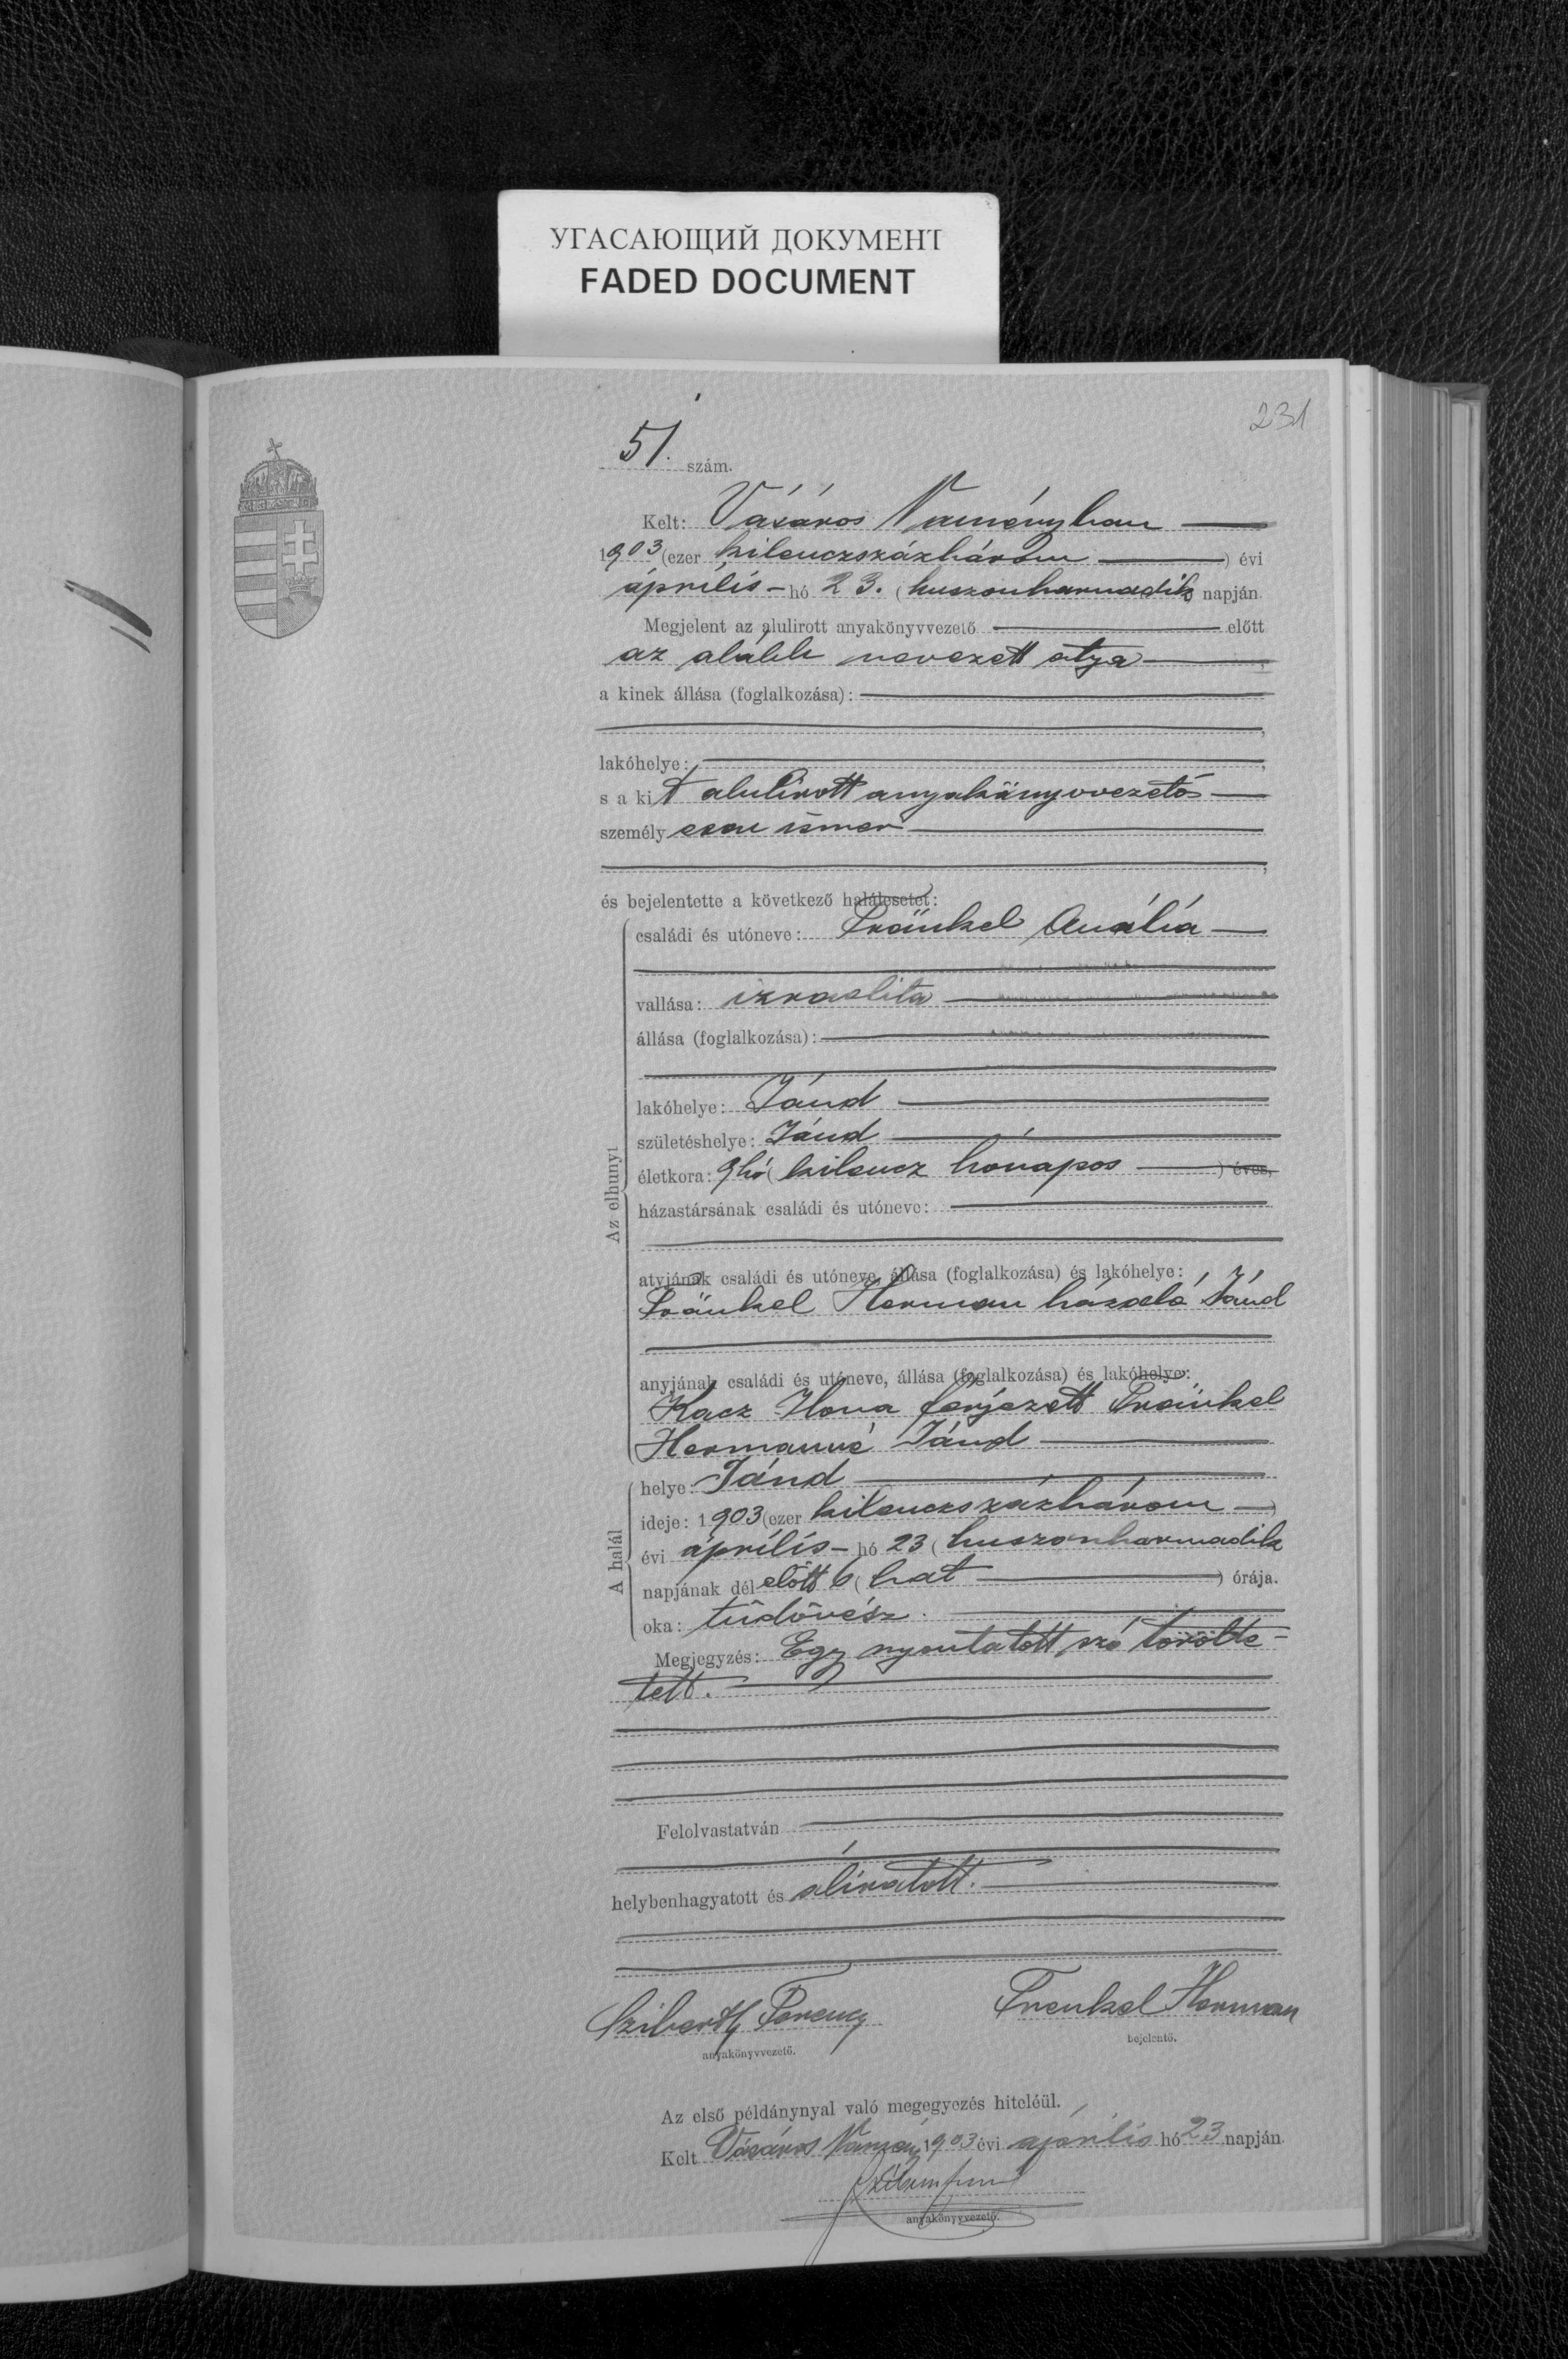 УГАСАЮЩИЙ ДОКУМЕНТ
FADED DOCUMENT
231
51. szám.
Kelt: Vásáros Naményban
1903 (ezer kilenczszázhárom) évi
április hó 23. (huszonharmadik napján.
Megjelent az alulirott anyakönyvvezető előtt
az alább nevezett atya,
a kinek állása (foglalkozása):
lakóhelye:
s a kit alulirott anyakönyvvezető
személyesen ismer
és bejelentette a következő halálesetet:
Az elhunyt
családi és utóneve: Fränkel Amália
vallása: izraelita
állása (foglalkozása):
lakóhelye: Jánd
születéshelye: Jánd
életkora: 9 hó (kilencz hónapos) éves,
házastársának családi és utóneve:
atyjának családi és utóneve, állása (foglalkozása) és lakóhelye:
Fränkel Herman házaló Jánd
anyjának családi és utóneve, állása (foglalkozása) és lakóhelye:
Kacz Ilona férjezett Fränkel
Hermanné Jánd
A halál
helye: Jánd
ideje: 1903 (ezer kilenczszázhárom)
évi április hó 23 (huszonharmadik
napjának dél előtt 6 (hat) órája.
oka: tüdővész.
Megjegyzés: Egy nyomtatott szó törölte-
tett.
Felolvastatván
helybenhagyatott és aláiratott.
Ferencz
Frenkel Herman
anyakönyvvezető.
bejelentő.
Az első példánynyal való megegyezés hiteléül.
Kelt Vásáros Namény 1903 évi április hó 23 napján.
anyakönyvvezető.